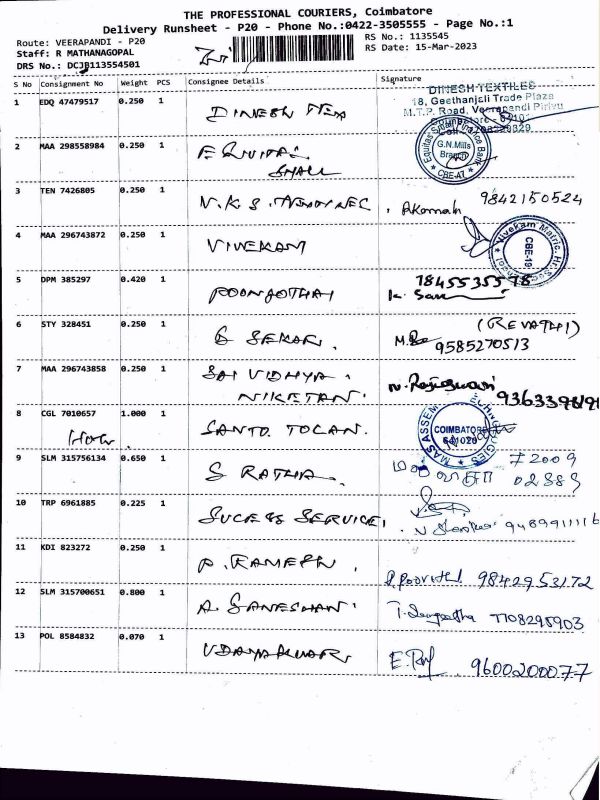 THE PROFESSIONAL COURIERS, Coimbatore
Delivery Runsheet - P20 - Phone No.:0422-3505555 - Page No.:1
Route: VEERAPANDI - P20
RS No.: 1135545
Staff: R MATHANAGOPAL
RS Date: 15-Mar-2023
DRS No.: DCJB113554501
S No Consignment No Weight PCS Consignee Details Signature
1 EDQ 47479517 0.250 1 DINESH TEX
DINESH TEXTILES
18, Geethanjali Trade Plaza
M.T.P. Road, Veerapandi Pirivu
2 MAA 298558984 0.250 1 EQUITAS
SMALL
Equitas Small Finance Bank
G.N.Mills
Branch
CBE-47
3 TEN 7426805 0.250 1 N.K.S. 9842150524
4 MAA 296743872 0.250 1 VIVEKAM
Vivekam Matric. Hr. Sec. School
CBE-19
5 DPM 385297 0.420 1 POONGOTHAI 7845535578
6 STY 328451 0.250 1 G SEKAR. (REVATHI)
9585270513
7 MAA 296743858 0.250 1 SAI VIDHYA
NIKETAN. N. Rajeswari
8 CGL 7010657 1.000 1 SANTO TOCAN.
COIMBATORE
641020
9 SLM 315756134 0.650 1 S RATHA 72009
02383
10 TRP 6961885 0.225 1 SUCESS SERVICE
11 KDI 823272 0.250 1 P. RAMESH 9842953172
12 SLM 315700651 0.800 1 A. GANESHAN. 7708295903
13 POL 8584832 0.070 1 UDAYAKUMAR 9600200077